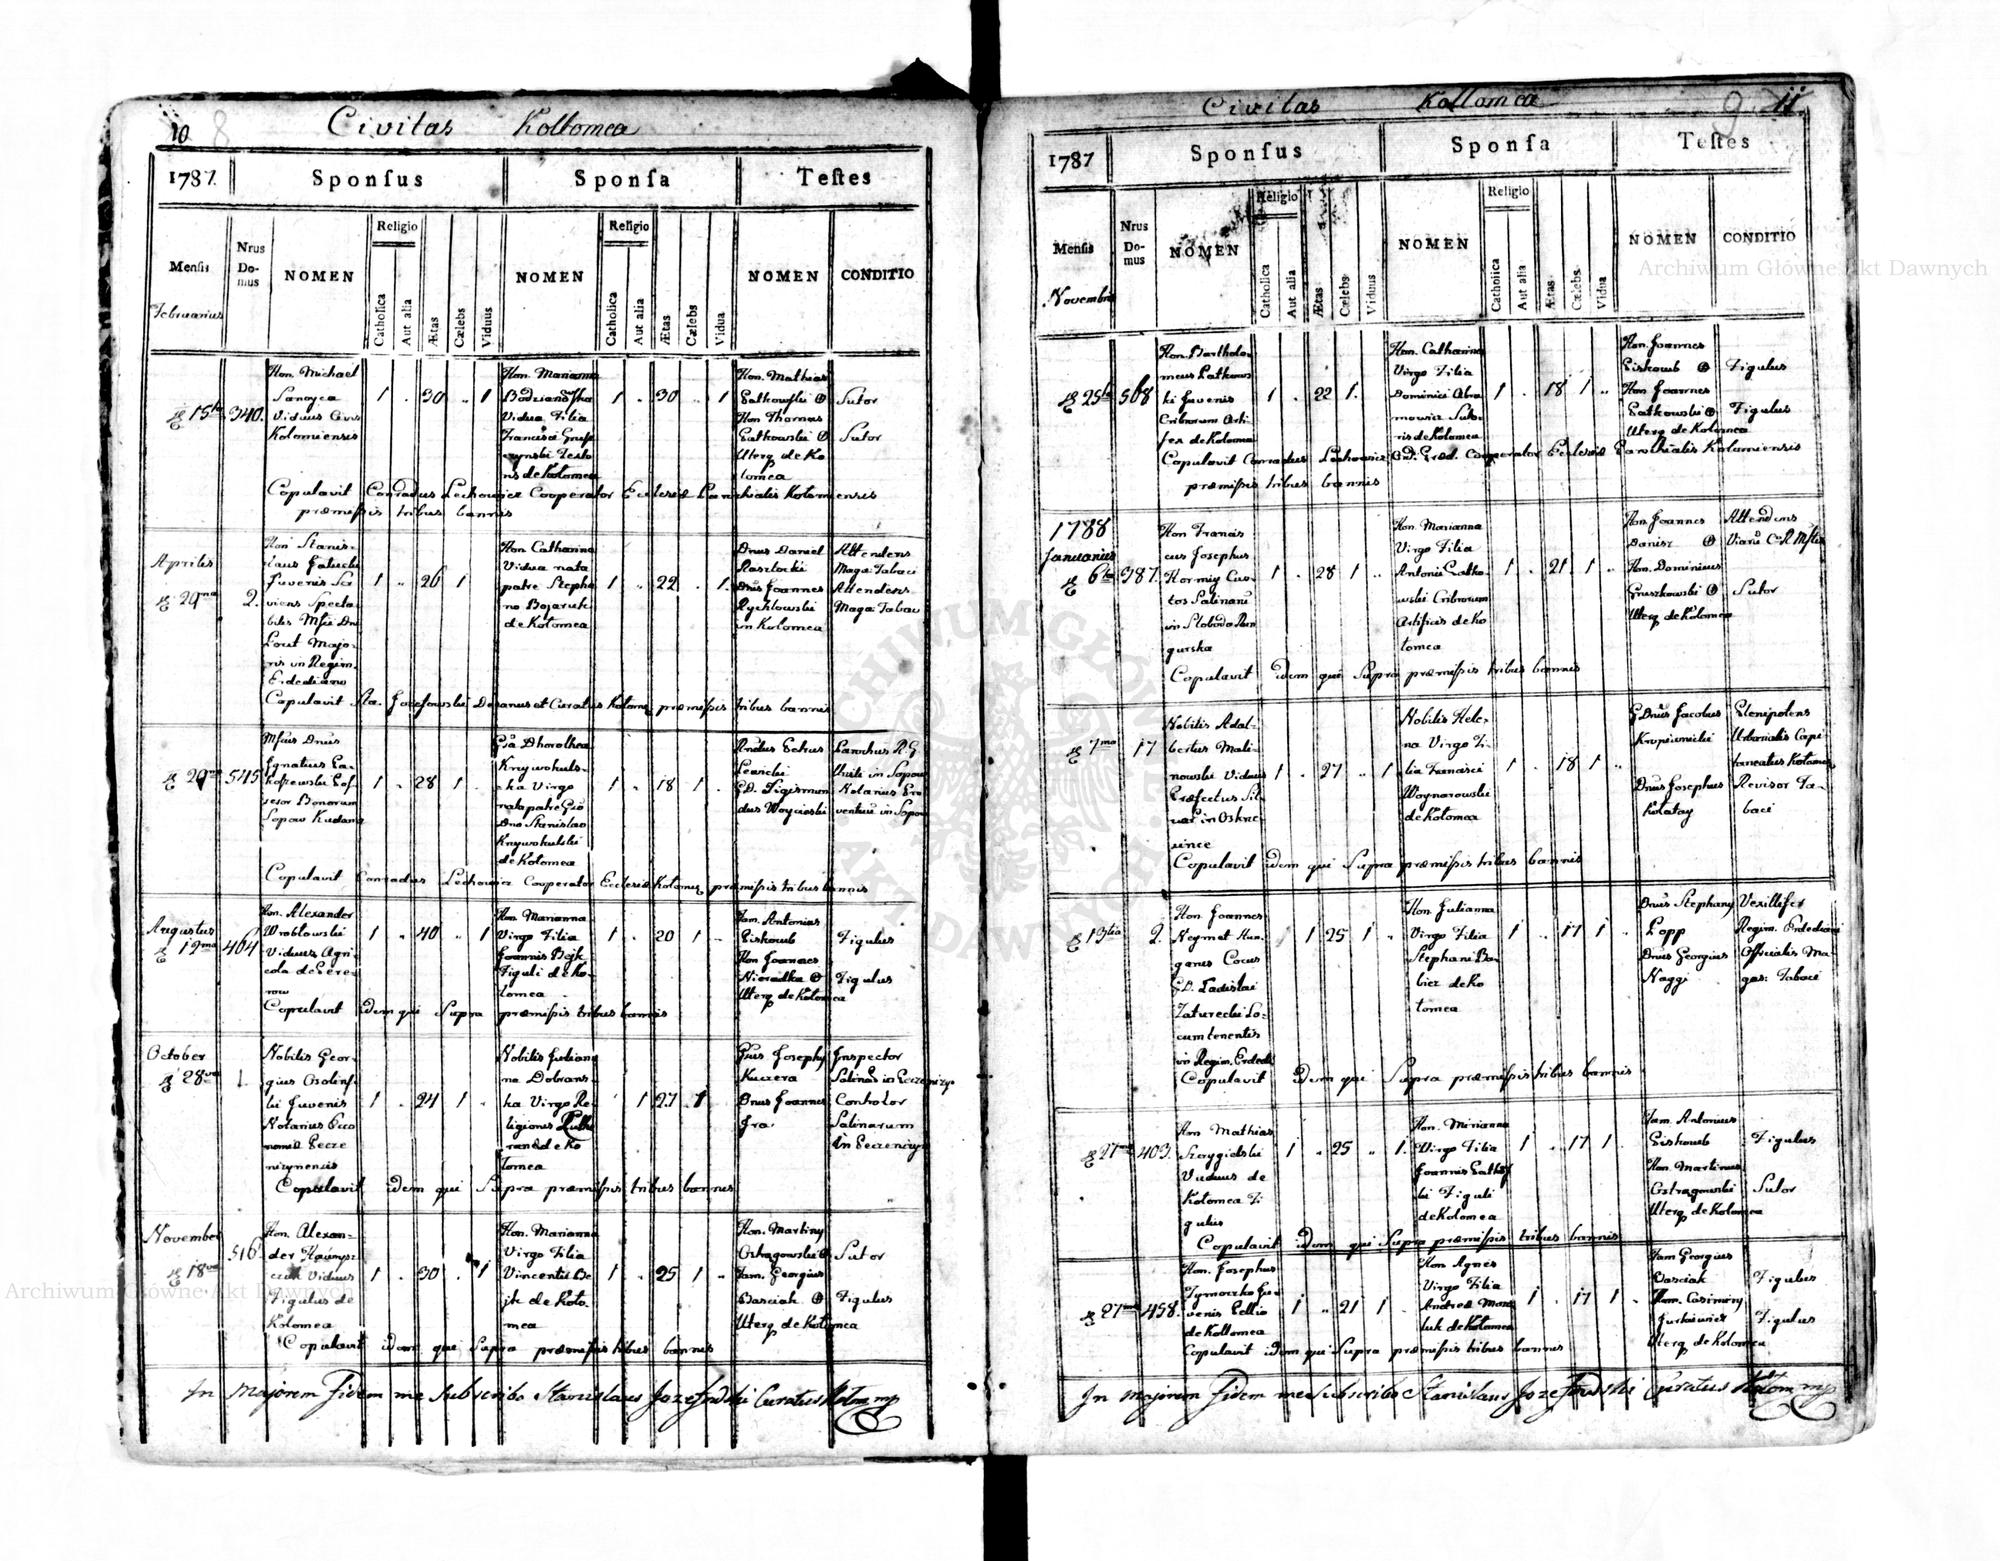 10 8 Civitas Kollomea
1787
Sponsus
Sponsa
Testes
Mensis
Februarius
Nrus Domus
NOMEN
Religio
Catholica
Aut alia
Ætas
Cælebs
Viduus
NOMEN
Religio
Catholica
Aut alia
Ætas
Cælebs
Vidua
NOMEN
CONDITIO
15ta
340.
Hon. Michael
Sanoyca
Viduus Civis
Kolomiensis
1 . 30 .. 1
Hon. Marianna
Vidua Filia
Francisci
de Kołomea
1 . 30 . 1
Hon. Mathias
Łatkowski
Hon Thomas
Łatkowski
Uterq de Ko
łomea
Sutor
Sutor
Copulavit Conradus Lechowicz Cooperator Ecclesiæ Parochialis Kolomiensis
præmissis tribus bannis
Aprilis
29na
2.
Hon Stanis-
laus
Juvenis Ser
viens Specta
bilis
Majo-
ris in Regim.
Erdediano
1 .. 26 1
Hon Catharina
Vidua nata
patre Stepha
no Bojaruk
de Kołomea
1 .. 22 . 1.
Dnus Daniel
Raszlocki
Dnus Joannes
Rychlowski
in Kolomea
Attendens
Maga: Tabaci
Attendens
Maga: Tabac
Copulavit Sta. Jozefowski Decanus et Curatus Kolome præmissis tribus bannis
29na
545
Dnus
Ignatius
sesor Bonorum
Sopow
1 . 28 1 .
Dhorothea
Krzywokuls-
ka Virgo
nata patre
Dno Stanislao
Krzywokulski
de Kołomea
1 . 18 1 .
Lewicki
Sigismun
dus Woycioski
Parochus R. G.
Uniti in Sopow
Copulavit Conradus Lechowicz Cooperator Ecclesiæ Kolome præmissis tribus bannis
Augustus
12ma
404
Hon. Alexander
Wroblowski
Viduus Agri-
cola de Cere-
1 . 40 . 1
Hon. Marianna
Virgo Filia
Joannis Bejk
Figuli de Ko-
łomea
1 . 20 1 .
Fam. Antonius
Liskowb
Hon Joannes
Nieradka
Uterq de Kołomea
Figulus
Figulus
Copulavit idem qui Supra præmissis tribus bannis
October
28va
1.
Nobilis Geor-
gius Osolins-
ki Juvenis
Notarius Oeco
nomiæ Pecze
nizynensis
1 . 24 1 .
Nobilis Julian-
na Dobrans-
ka Virgo Re-
ligionis Luthe
ranæ de Ko
łomea
1 27 . 1
Josephy
Kuczera
Dnus Joannes
Fra.
Inspector
Salinar in Peczenizyn
Controlor
Salinarum
in Peczenizyn
Copulavit idem qui Supra præmissis tribus bannis
November
18va
516
Hon. Alexan-
der
czuk Viduus
Figulus de
Kołomea
1 . 30 . 1
Hon. Marianna
Virgo Filia
Vincentii Be
jk de Koło-
mea
1 . 25 1 ..
Hon. Martiny
Ostragowski
Fam. Georgius
Basciak
Uterq de Kołomea
Sutor
Figulus
Copulavit idem qui Supra præmissis tribus bannis
In Majorem Fidem me Subscribo Stanislaus Jozefowski Curatus Kolom mp
Civitas Kollomea 9 11
1787
Sponsus
Sponsa
Testes
Mensis
Novembris
Nrus Domus
NOMEN
Religio
Catholica
Aut alia
Ætas
Cælebs
Viduus
NOMEN
Religio
Catholica
Aut alia
Ætas
Cælebs
Vidua
NOMEN
CONDITIO
25ta
568
Hon. Bartholo-
meus Łatkows
ki Juvenis
Cribrorum Arti-
fex de Kolomea
1 . 22 1.
Hon. Catharina
Virgo Filia
Dominici Abra
mowicz Suto-
ris de Kołomea
1 . 18 1 ..
Hon. Joannes
Liskowb
Hon Joannes
Łatkowski
Uterq de Kołomea
Figulus
Figulus
Copulavit Conradus Lechowicz Ord: Præd. Cooperator Ecclesiæ Parochialis Kolomiensis
præmissis tribus bannis
1788
Januarius
6ta
387.
Hon Francis
cus Josephus
Kormiy Cus-
tos Salinarū
in Sloboda Run
gurska
1 . 28 1 ..
Hon. Marianna
Virgo Filia
Antonii Łatko-
wski Cribrorum
Artificis de Ko
łomea
1 . 21 1 ..
Hon. Joannes
Danisz
Hon. Dominicus
Gruszkowski
Uterq de Kołomea
Attendens
Sutor
Copulavit idem qui Supra præmissis tribus bannis
7ma
17
Nobilis Adal-
bertus Mali-
nowski Viduus
Præfectus Sil-
var. in Oskrze
sińce
1 . 27 .. 1
Nobilis Hele-
na Virgo Fi-
lia Francisci
Woynarowski
de Kołomea
1 . 18 1 ..
Dnus Jacobus
Kropiwnicki
Dnus Josephus
Kołatay
Plenipotens
Urbarialis Capi
taneatus Kołomea
Revisor Ta-
baci
Copulavit idem qui Supra præmissis tribus bannis
13tia
2.
Hon. Joannes
Neymet Hun-
garus Cocus
Ladislai
Zaturecki Lo-
cumtenentis
in Regim. Erdedi
1 25 1 ..
Hon Julianna
Virgo Filia
Stephani Ba-
bicz de Ko
łomea
1 .. 17 1 ..
Dnus Stephany
Popp
Dnus Georgius
Naggi
Vexillifer
Regim. Erdediani
Officialis Ma-
gas: Tabaci
Copulavit idem qui Supra præmissis tribus bannis
27ma
403.
Hon Mathias
Skrzygielski
Viduus de
Kołomea Fi-
gulus
1 .. 25 .. 1.
Hon. Mirianna
Virgo Filia
Joannis Łatkows
ki Figuli
de Kołomea
1 . 17 1 .
Fam. Antonius
Liskowb
Hon. Martinus
Ostragowski
Uterq de Kołomea
Figulus
Sutor
Copulavit idem qui Supra præmissis tribus bannis
27ma
458.
Hon. Josephus
Tymoczko Ju-
venis Pellio
de Kollomea
1 .. 21 1 .
Hon Agnes
Virgo Filia
Andreæ
de Kołomea
1 . 17 1 .
Fam Georgius
Basciak
Hon. Casimiry
Jurkiewicz
Uterq de Kołomea
Figulus
Figulus
Copulavit idem qui Supra præmissis tribus bannis
In Majorem Fidem me Subscribo Stanislaus Jozefowski Curatus Kolom mp
Archiwum Główne Akt Dawnych
Archiwum Główne Akt Dawnych
ARCHIWUM GŁÓWNE AKT DAWNYCH